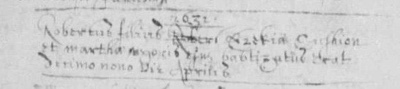 1631
Robertus filius Robert Ezekia Cushion
et martha uxoris eius baptizatus erat
Decimo nono die Aprilis